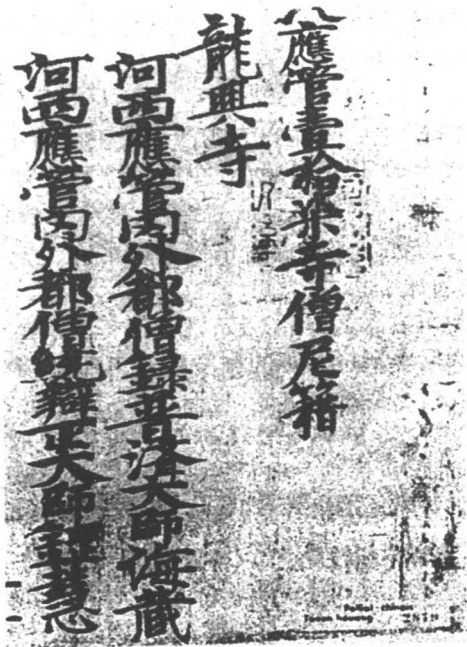 應管壹拾柒寺僧尼籍
龍興寺
河西應管內外都僧錄普濟大師海藏
河西應管內外都僧統辯正大師鋼惠
Pelliot chinois
Touen-houang 2879